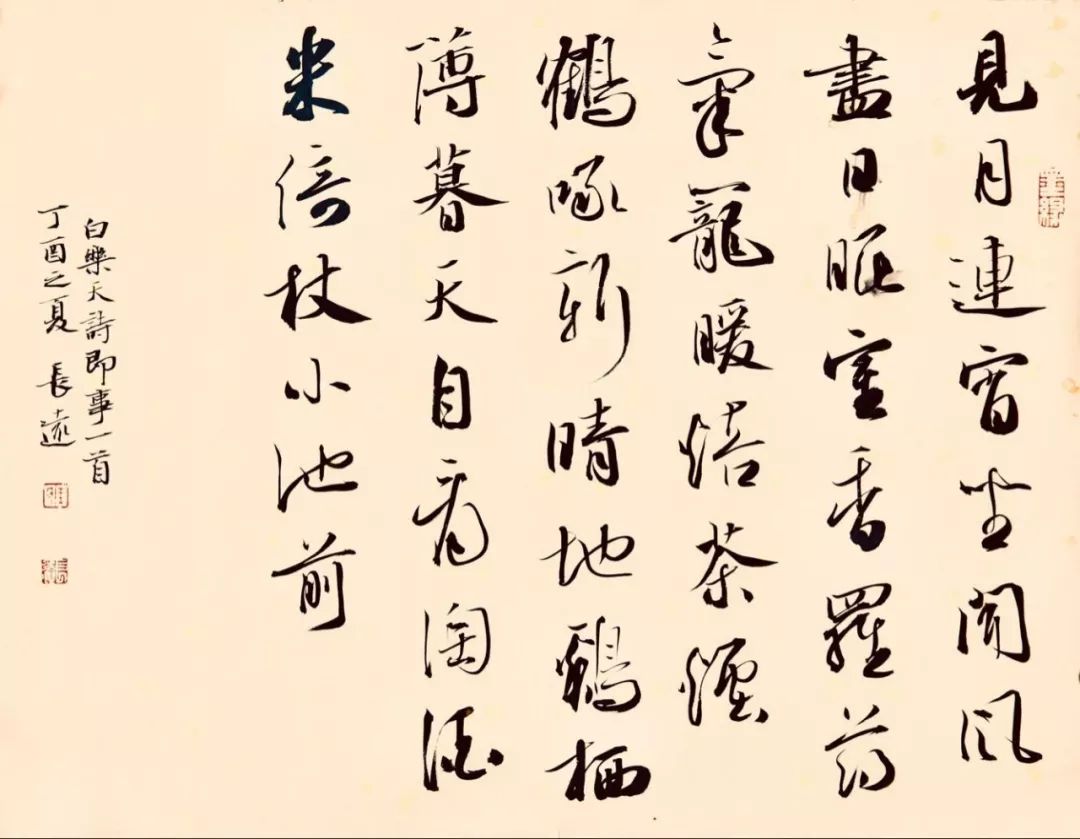 見月連宵坐聞風
盡日眠室香羅药
氣籠暖焙茶煙
鶴啄新晴地鷄栖
薄暮天自看淘酒
米倚杖小池前
白樂天詩即事一首
丁酉之夏 長遠